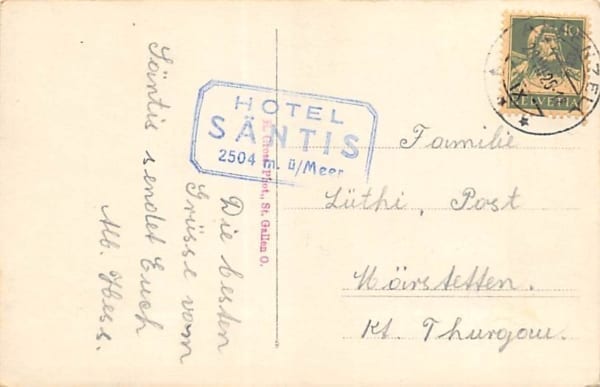 Die besten
Grüsse vom
Säntis sendet Euch
Alb. Hess.
HOTEL
SÄNTIS
2504 m. ü/Meer
Phot., St. Gallen O.
10
HELVETIA
Familie
Lüthi, Post
Märstetten.
Kt. Thurgau.